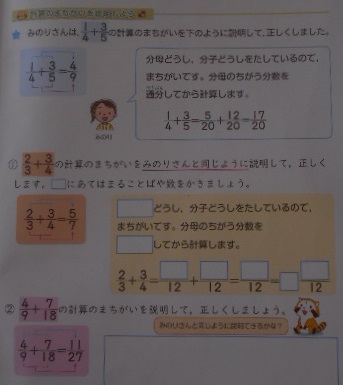 計算のまちがいを説明しよう
★ みのりさんは、1/4+3/5の計算のまちがいを下のように説明して、正しくしました。
1/4+3/5=4/9
分母どうし、分子どうしをたしているので、
まちがいです。分母のちがう分数を
通分してから計算します。
1/4+3/5=5/20+12/20=17/20
みのり
① 2/3+3/4の計算のまちがいをみのりさんと同じように説明して、正しく
します。□にあてはまることばや数をかきましょう。
2/3+3/4=5/7
□どうし、分子どうしをたしているので、
まちがいです。分母のちがう分数を
□してから計算します。
2/3+3/4=□/12+□/12=□/12=□ □/12
② 4/9+7/18の計算のまちがいを説明して、正しくしましょう。
みのりさんと同じように説明できるかな?
4/9+7/18=11/27